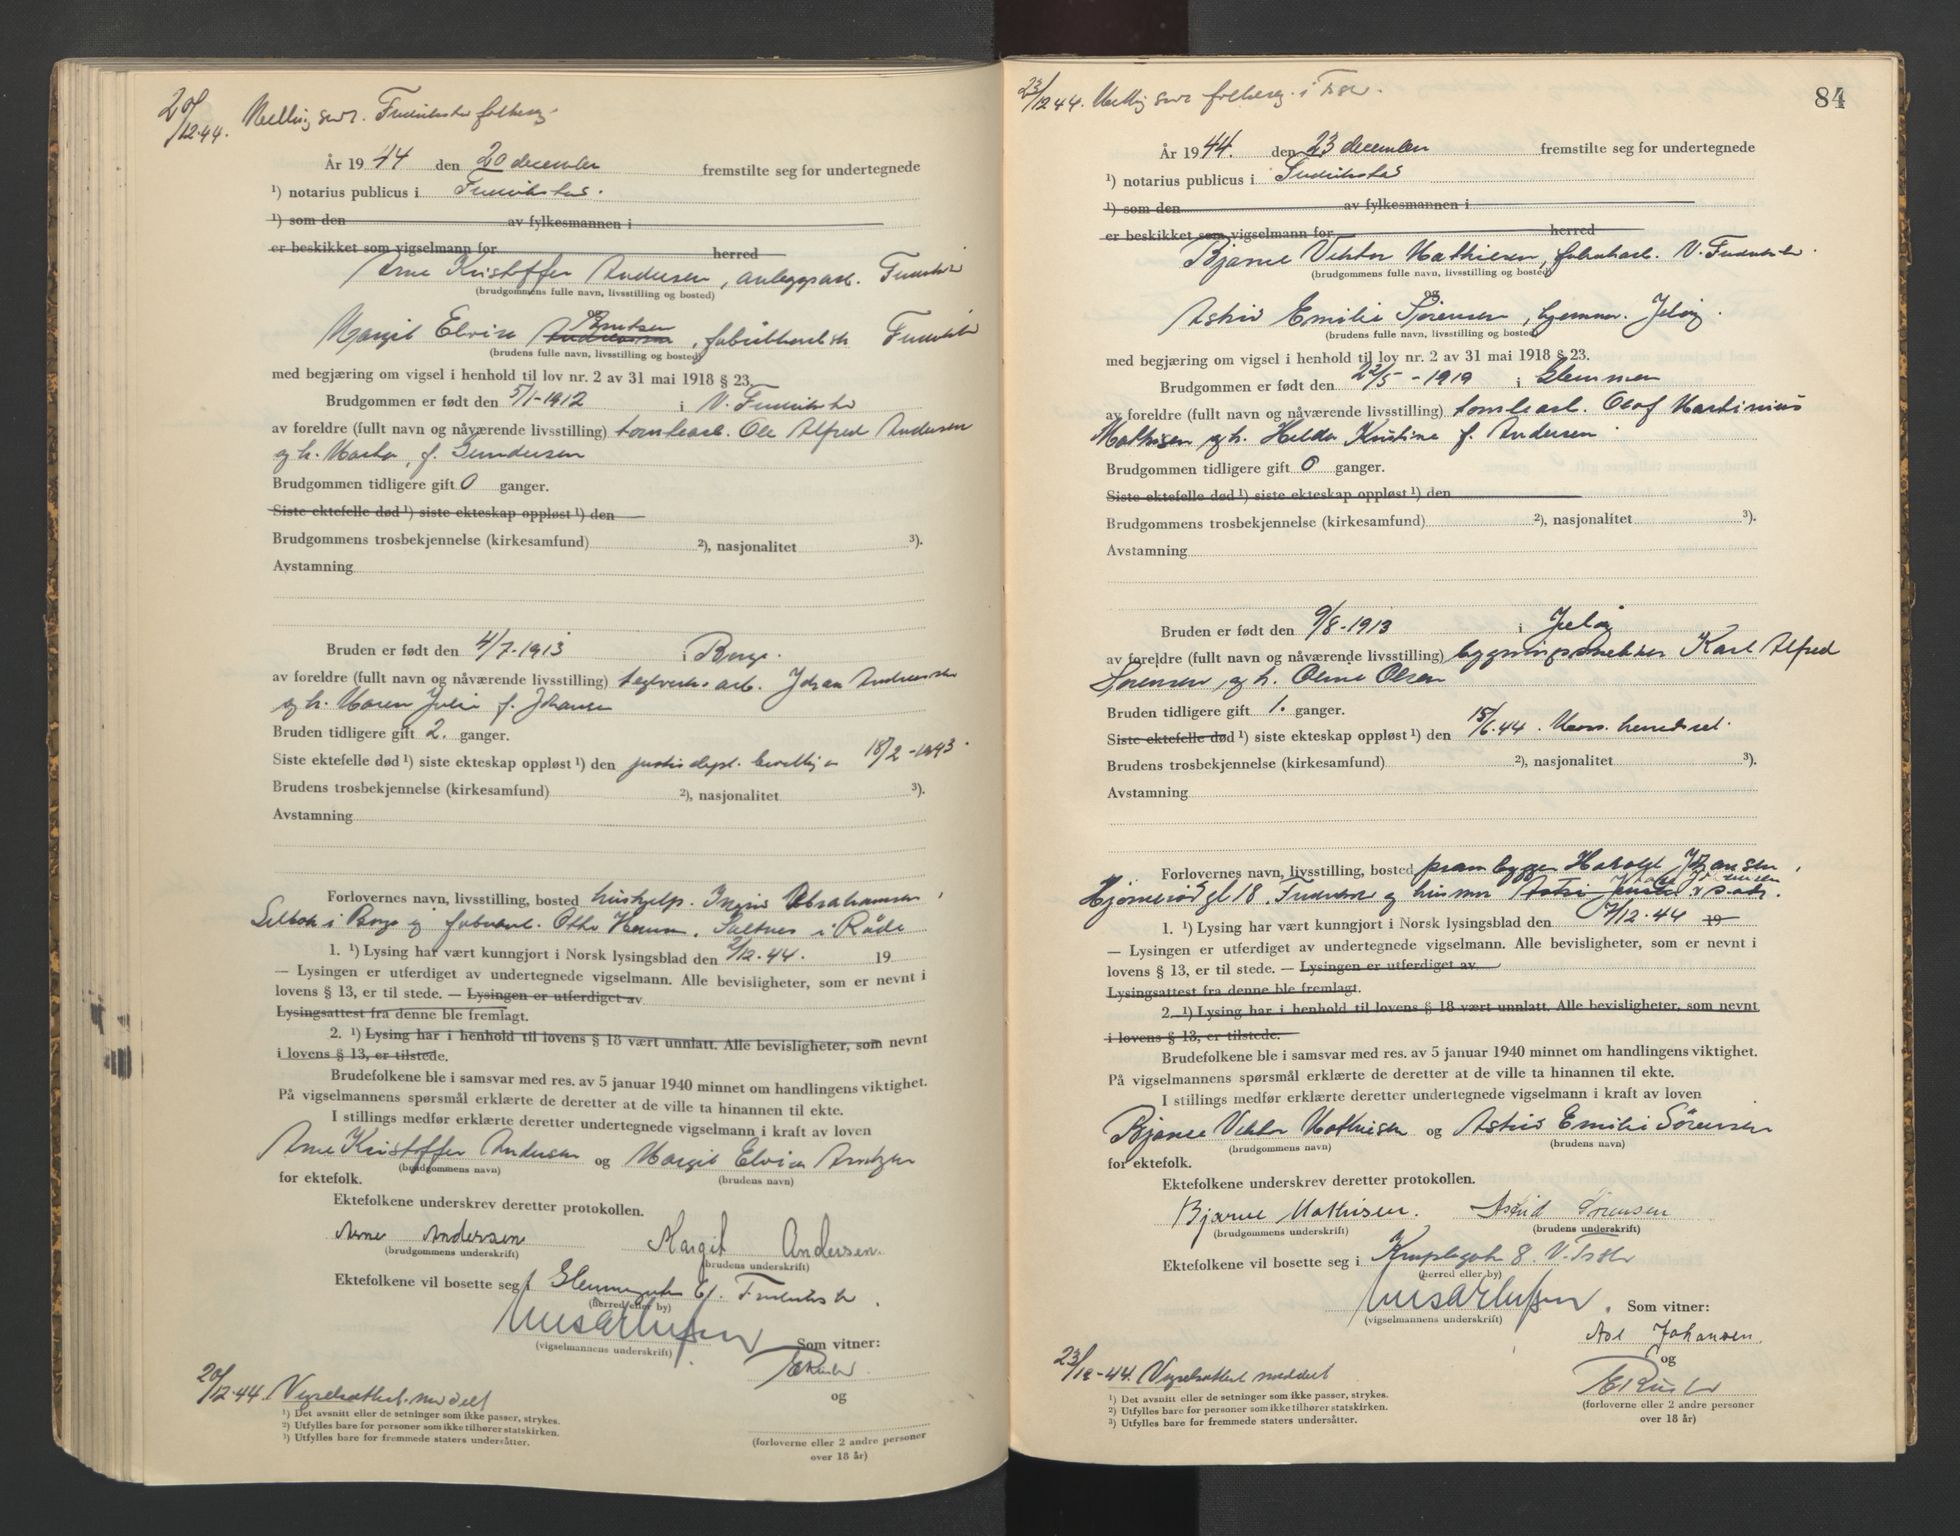 20/12-44. Melding sendt Fredrikstad folkereg.
År 1944 den 20 december fremstilte seg for undertegnede
¹) notarius publicus i Fredrikstad.
¹) som den av fylkesmannen i
er beskikket som vigselmann for herred
Arne Kristoffer Andersen, anleggsarb. Fredrikstad
(brudgommens fulle navn, livsstilling og bosted)
og
Margit Elvira Arntzen, fabrikkarb. Fredrikstad
(brudens fulle navn, livsstilling og bosted)
med begjæring om vigsel i henhold til lov nr. 2 av 31 mai 1918 § 23.
Brudgommen er født den 5/1-1912 i V. Fredrikstad
av foreldre (fullt navn og nåværende livsstilling) tomtearb. Ole Alfred Andersen
og h. Marta, f. Gundersen
Brudgommen tidligere gift 0 ganger.
Siste ektefelle død ¹) siste ekteskap oppløst ¹) den
Brudgommens trosbekjennelse (kirkesamfund) ²), nasjonalitet ³).
Avstamning
Bruden er født den 4/7-1913 i Borge.
av foreldre (fullt navn og nåværende livsstilling) teglverksarb. Johan
og h. Maren Julie f. Johansen
Bruden tidligere gift 2. ganger.
Siste ektefelle død ¹) siste ekteskap oppløst ¹) den justisdept. bevilling 18/2-1943.
Brudens trosbekjennelse (kirkesamfund) ²), nasjonalitet ³).
Avstamning
Forlovernes navn, livsstilling, bosted hushjelp. Ingrid Abrahamsen,
Selbak i Borge og fabrarb. Otto Hansen, Saltnes i Råde
1. ¹) Lysing har vært kunngjort i Norsk lysingsblad den 2/12-44. 19
— Lysingen er utferdiget av undertegnede vigselmann. Alle bevisligheter, som er nevnt i
lovens § 13, er til stede. — Lysingen er utferdiget av
Lysingsattest fra denne ble fremlagt.
2. ¹) Lysing har i henhold til lovens § 18 vært unnlatt. Alle bevisligheter, som nevnt
i lovens § 13, er tilstede.
Brudefolkene ble i samsvar med res. av 5 januar 1940 minnet om handlingens viktighet.
På vigselmannens spørsmål erklærte de deretter at de ville ta hinannen til ekte.
I stillings medfør erklærte deretter undertegnede vigselmann i kraft av loven
Arne Kristoffer Andersen og Margit Elvira Arntzen
(brudgommens navn) (brudens navn)
for ektefolk.
Ektefolkene underskrev deretter protokollen.
Arne Andersen Margit Andersen.
(brudgommens underskrift) (brudens underskrift)
Ektefolkene vil bosette seg i Glemmegaten 61. Fredrikstad.
(herred eller by)
(vigselmannens underskrift) Som vitner:
og
20/12-44. Vigselsattest meddelt
¹) Det avsnitt eller de setninger som ikke passer, strykes.
²) Utfylles bare for personer som ikke tilhører statskirken.
³) Utfylles bare for fremmede staters undersåtter.
(forloverne eller 2 andre personer
over 18 år)
84
23/12 44. Melding sendt folkereg. i Fr.stad.
År 1944. den 23 december fremstilte seg for undertegnede
¹) notarius publicus i Fredrikstad
¹) som den av fylkesmannen i
er beskikket som vigselmann for herred
Bjarne Viktor Mathisen, fabrikkarb. V. Fredrikstad
(brudgommens fulle navn, livsstilling og bosted)
og
Astrid Emilie Sørensen, hjemmev. Jeløy.
(brudens fulle navn, livsstilling og bosted)
med begjæring om vigsel i henhold til lov nr. 2 av 31 mai 1918 § 23.
Brudgommen er født den 22/5-1919 i Glemmen
av foreldre (fullt navn og nåværende livsstilling) tomtearb. Olaf Martinius
Mathisen og h. Hilda Kristine f. Andersen.
Brudgommen tidligere gift 0 ganger.
Siste ektefelle død ¹) siste ekteskap oppløst ¹) den
Brudgommens trosbekjennelse (kirkesamfund) ²), nasjonalitet ³).
Avstamning
Bruden er født den 9/8-1913 i Jeløy
av foreldre (fullt navn og nåværende livsstilling) bygningssnekker Karl Alfred
Sørensen, og h. Olene Olsen
Bruden tidligere gift 1. ganger.
Siste ektefelle død ¹) siste ekteskap oppløst ¹) den 15/6.44. Moss herredsret.
Brudens trosbekjennelse (kirkesamfund) ²), nasjonalitet ³).
Avstamning
Forlovernes navn, livsstilling, bosted prambygger Harald Johansen,
Hjørnerødgl 18. Fredrikstad og husmor
1. ¹) Lysing har vært kunngjort i Norsk lysingsblad den 7/12-44 19
— Lysingen er utferdiget av undertegnede vigselmann. Alle bevisligheter, som er nevnt i
lovens § 13, er til stede. — Lysingen er utferdiget av
Lysingsattest fra denne ble fremlagt.
2. ¹) Lysing har i henhold til lovens § 18 vært unnlatt. Alle bevisligheter, som nevnt
i lovens § 13, er tilstede.
Brudefolkene ble i samsvar med res. av 5 januar 1940 minnet om handlingens viktighet.
På vigselmannens spørsmål erklærte de deretter at de ville ta hinannen til ekte.
I stillings medfør erklærte deretter undertegnede vigselmann i kraft av loven
Bjarne Viktor Mathisen og Astrid Emilie Sørensen
(brudgommens navn) (brudens navn)
for ektefolk.
Ektefolkene underskrev deretter protokollen.
Bjarne Mathisen. Astrid Sørensen
(brudgommens underskrift) (brudens underskrift)
Ektefolkene vil bosette seg i 8. V. Fr.stad
(herred eller by)
(vigselmannens underskrift) Som vitner:
Johansen.
og
23/12-44. Vigselsattest meddelt
¹) Det avsnitt eller de setninger som ikke passer, strykes.
²) Utfylles bare for personer som ikke tilhører statskirken.
³) Utfylles bare for fremmede staters undersåtter.
(forloverne eller 2 andre personer
over 18 år)